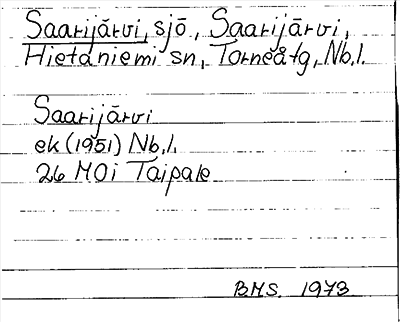 Saarijärvi, sjö, Saarijärvi,
Hietaniemi sn, Torneå tg, Nb.l.
Saarijärvi
ek (1951) Nb.l.
26 M0i Taipale
B.M.S. 1973